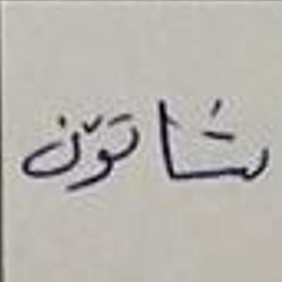 شاتون